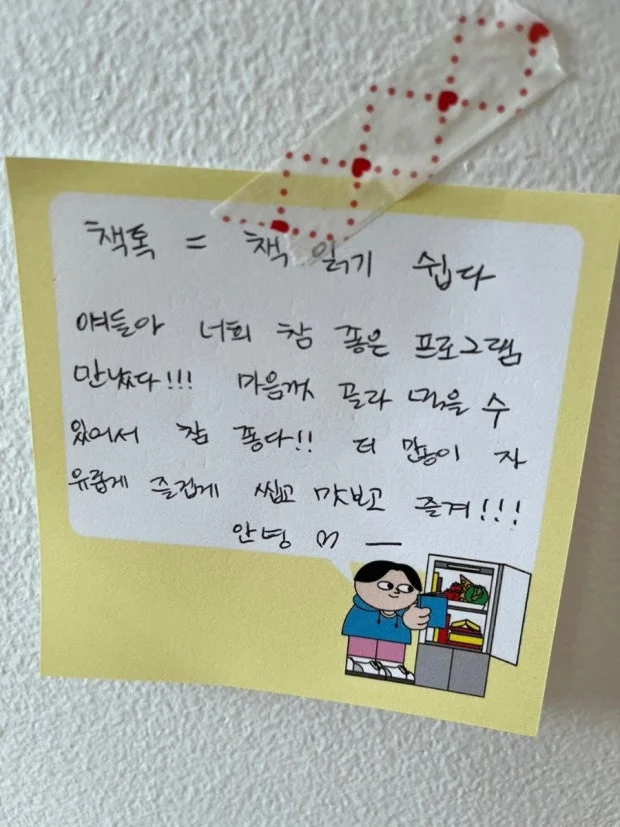 책톡 = 책 읽기 쉽다
얘들아 너희 참 좋은 프로그램
만났다!!! 마음껏 골라 먹을 수
있어서 참 좋다!! 더 많이 자
유롭게 즐겁게 씹고 맛보고 즐겨!!!
안녕